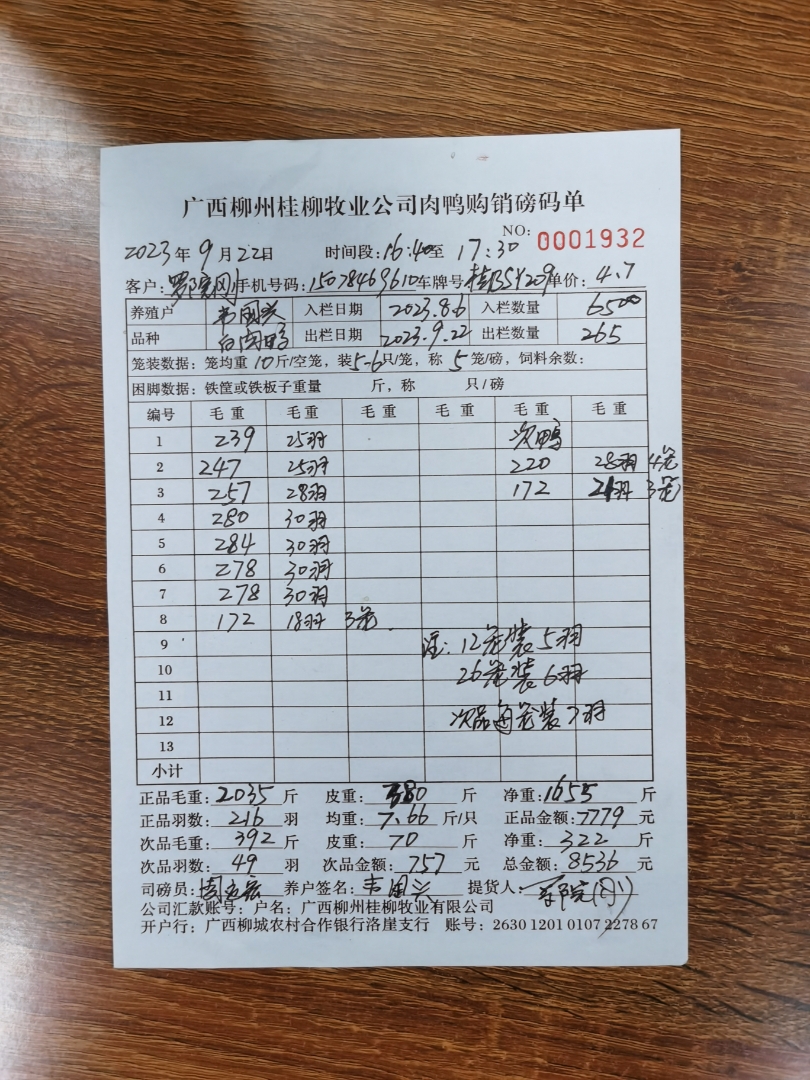 广西柳州桂柳牧业公司肉鸭购销磅码单
NO: 0001932
2023年9月22日 时间段:16:40至17:30
客户: 手机号码:15078469610车牌号桂BSY209单价:4.7
养殖户 韦国兴 入栏日期 2023.8.6 入栏数量 6500
品种 白肉鸭 出栏日期 2023.9.22 出栏数量 265
笼装数据: 笼均重10斤/空笼, 装5-6只/笼, 称5笼/磅, 饲料余数:
困脚数据: 铁筐或铁板子重量 斤, 称 只/磅
编号 毛重 毛重 毛重 毛重 毛重 毛重
1 239 25羽 次鸭
2 247 25羽 220 28羽 4笼
3 257 28羽 172 21羽 3笼
4 280 30羽
5 284 30羽
6 278 30羽
7 278 30羽
8 172 18羽 3笼.
9 注:12笼装5羽
10 26笼装6羽
11
12 次品每笼装7羽
13
小计
正品毛重:2035斤 皮重:380斤 净重:1655斤
正品羽数:216羽 均重:7.66斤/只 正品金额:7779元
次品毛重:392斤 皮重:70斤 净重:322斤
次品羽数:49羽 次品金额:757元 总金额:8536元
司磅员: 养户签名:韦国兴 提货人:
公司汇款账号: 户名: 广西柳州桂柳牧业有限公司
开户行: 广西柳城农村合作银行洛崖支行 账号: 2630 1201 0107 2278 67